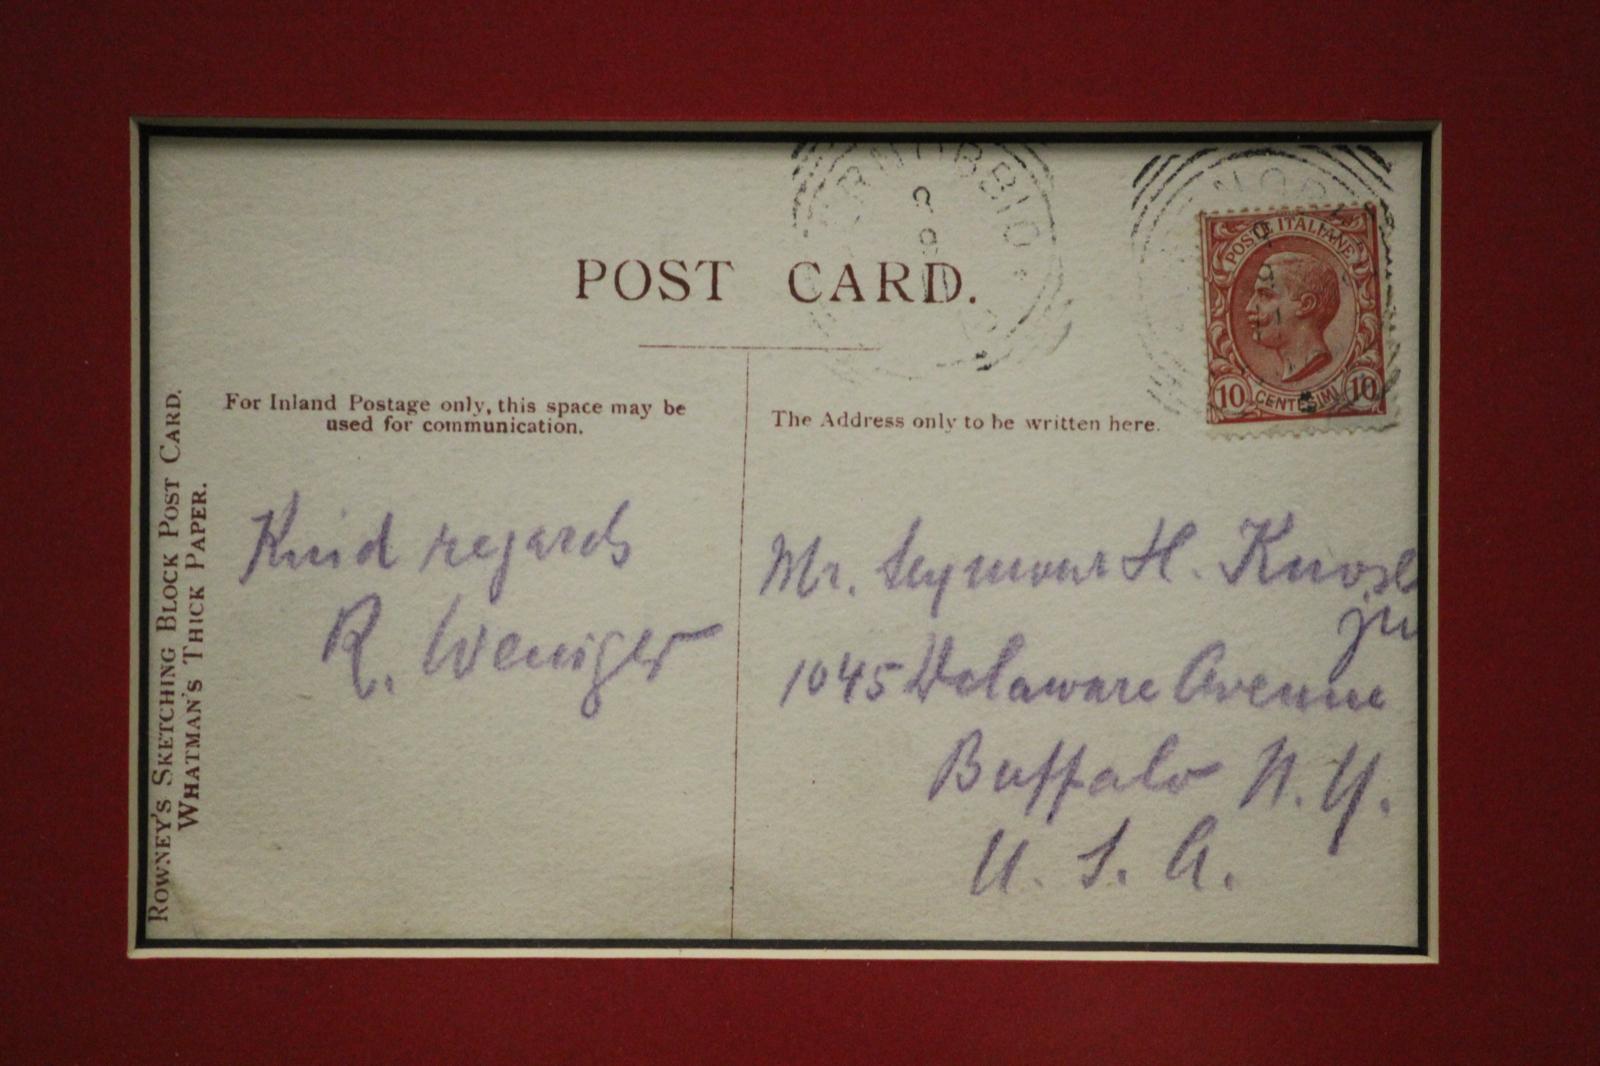 POST CARD.
POSTE ITALIANE
10 CENTESIMI 10
For Inland Postage only, this space may be
used for communication.
The Address only to be written here.
ROWNEY'S SKETCHING BLOCK POST CARD.
WHATMAN'S THICK PAPER.
Kind regards
R. Weniger
Mr. Seymour H. Knox
jr
1045 Delaware Avenue
Buffalo N. Y.
U. S. A.